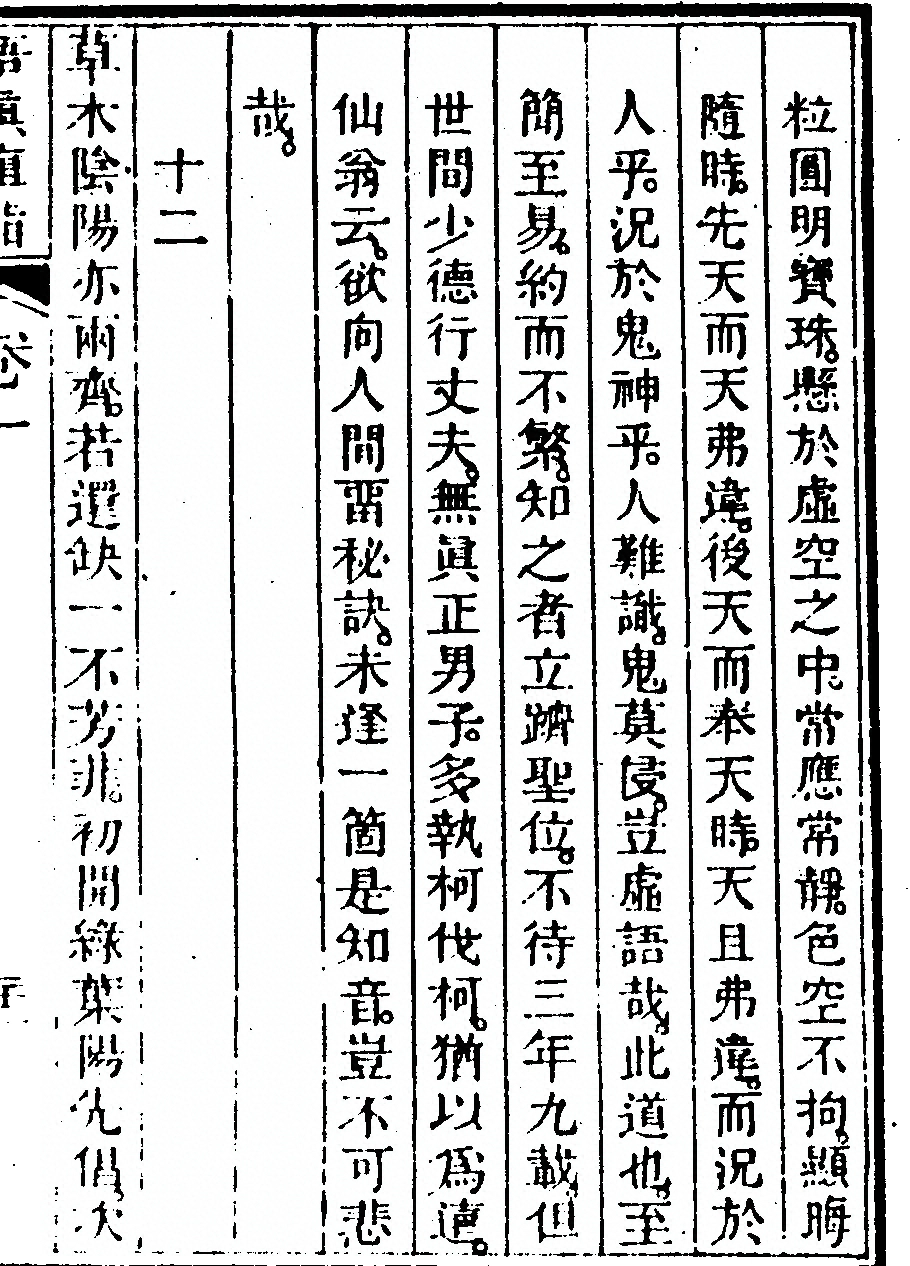 粒圓明寶珠。懸於虛空之中。常應常靜。色空不拘。顯晦
隨時。先天而天弗違。後天而奉天時。天且弗違。而況於
人乎。況於鬼神乎。人難識。鬼莫侵。豈虛語哉。此道也。至
簡至易。約而不繁。知之者立躋聖位。不待三年九載。但
世間少德行丈夫。無眞正男子。多執柯伐柯。猶以爲遠。
仙翁云。欲向人間畱秘訣。未逢一箇是知音。豈不可悲
哉。
十二
草木陰陽亦兩齊。若還缺一不芳菲。初開綠葉陽先倡。次
悟眞直指 卷一